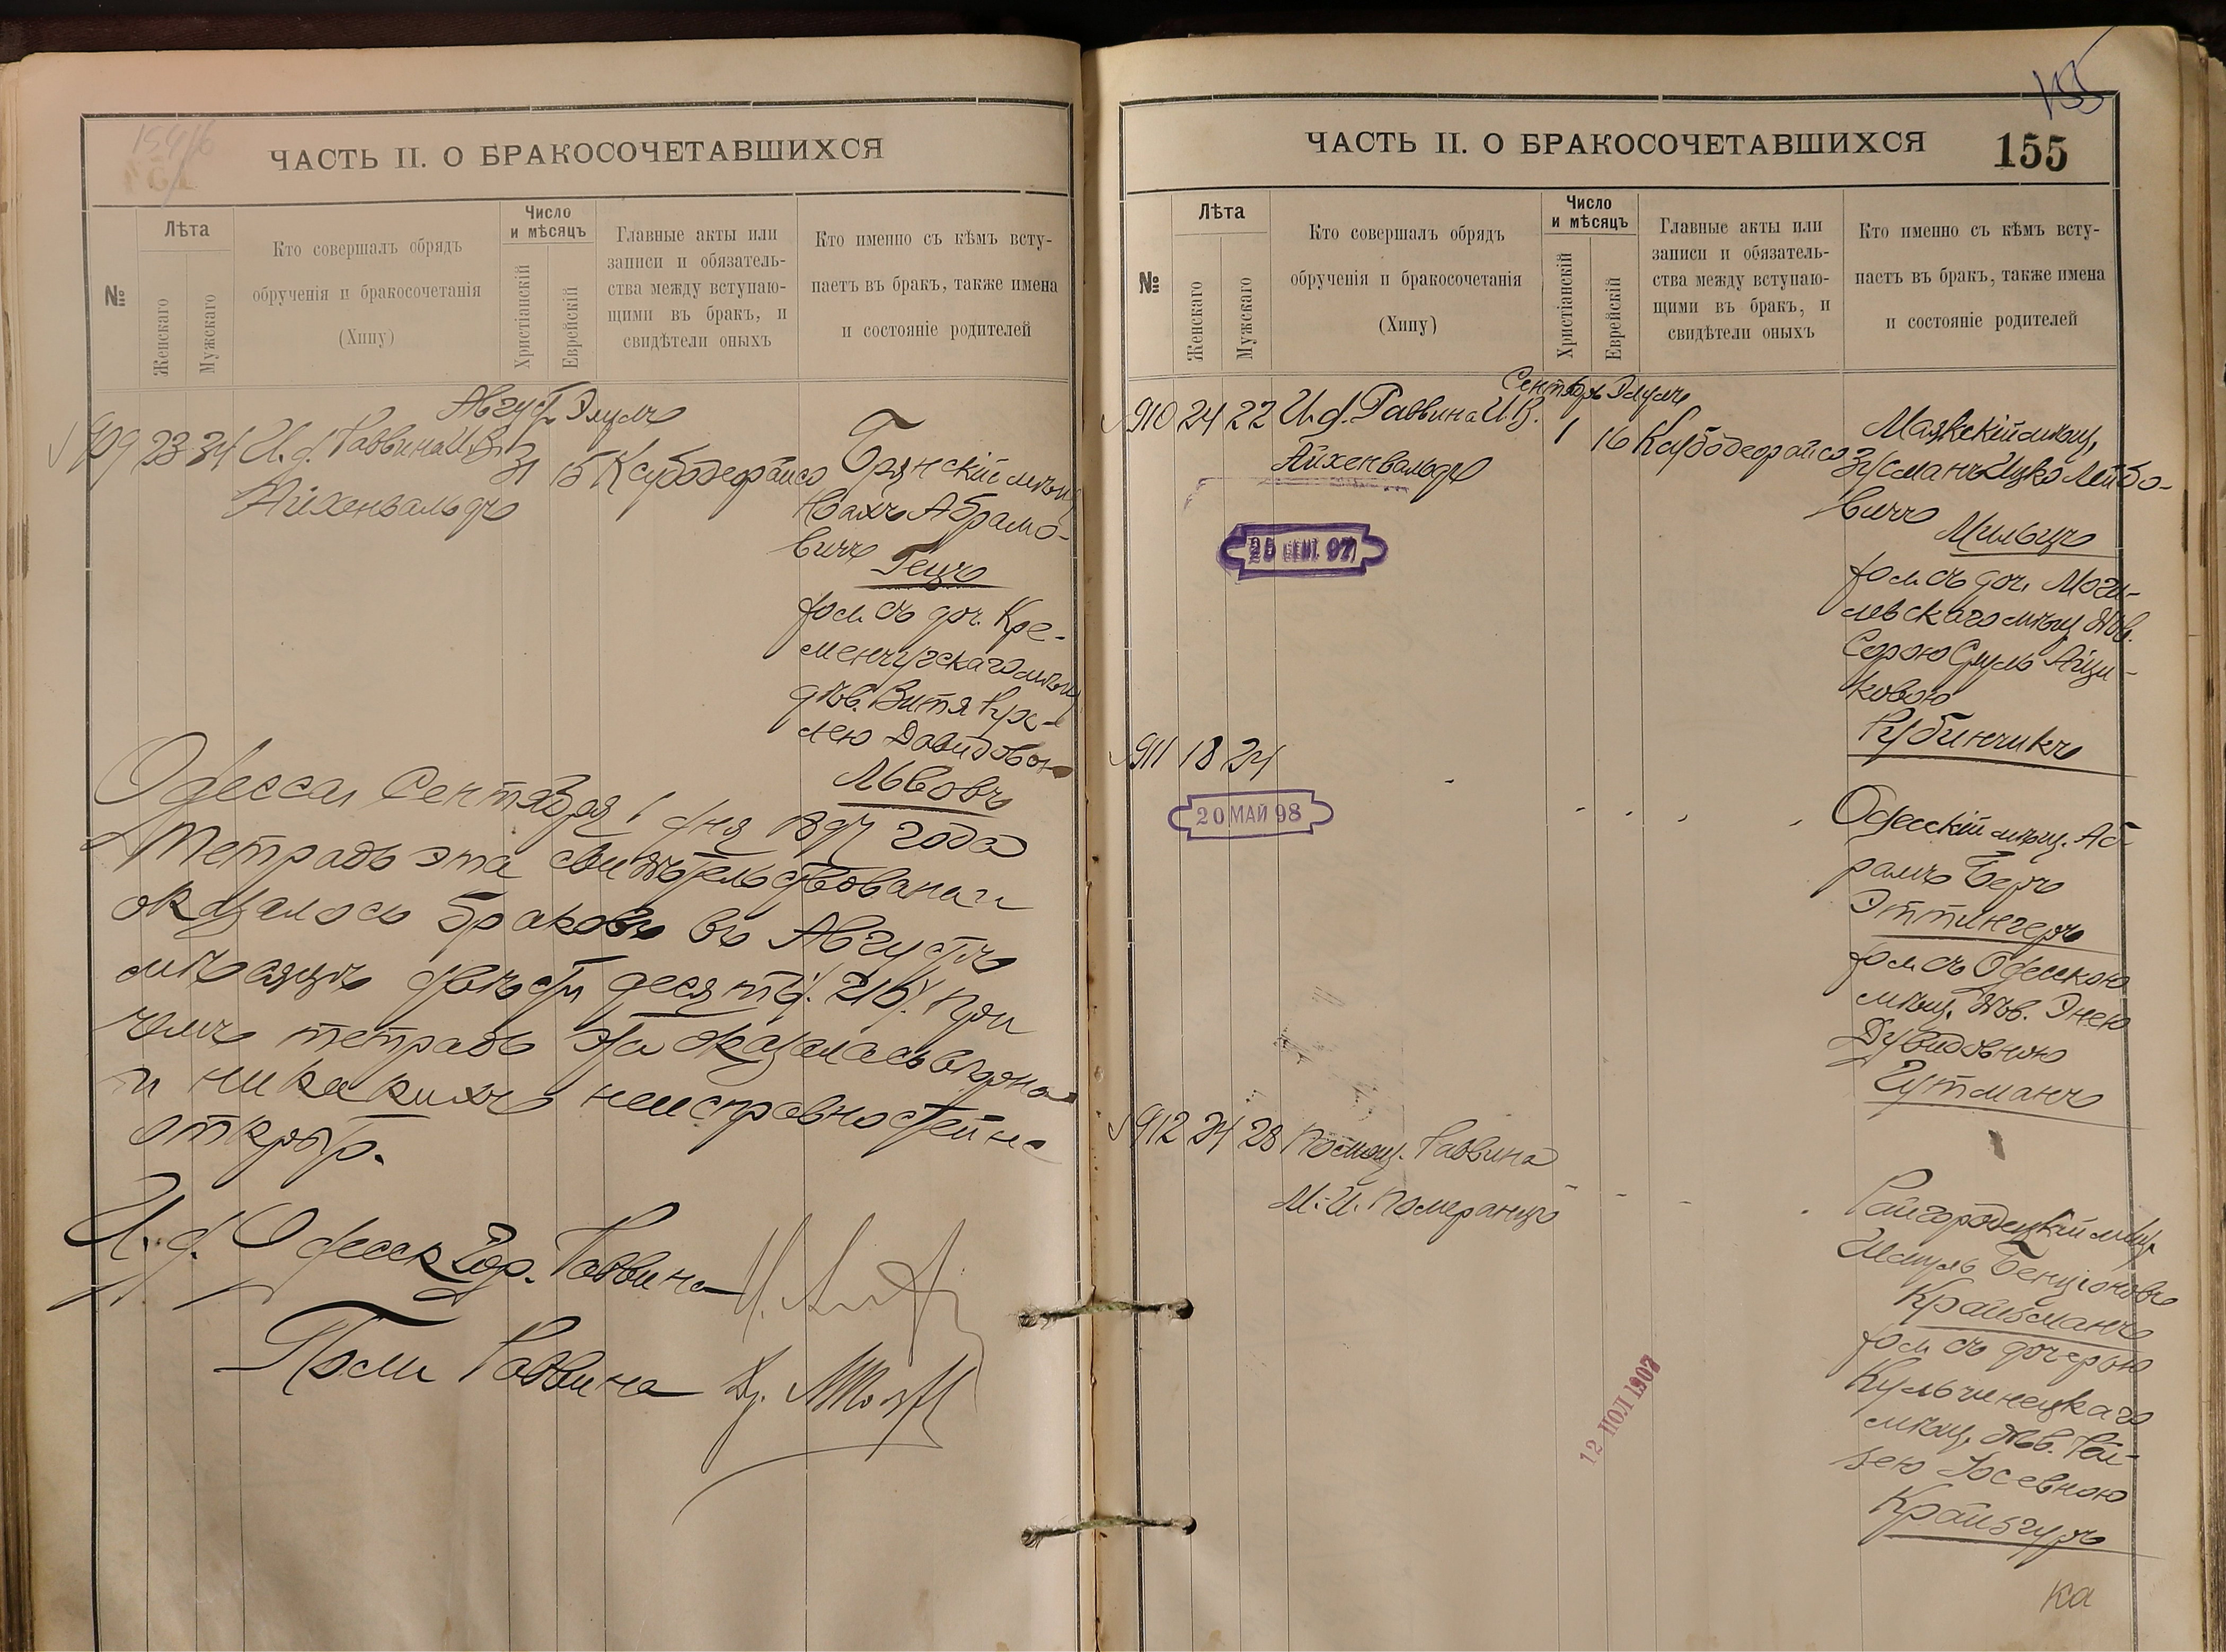 ЧАСТЬ II. О БРАКОСОЧЕТАВШИХСЯ
№
Лѣта
Женскаго
Мужскаго
Кто совершалъ обрядъ
обрученія и бракосочетанія
(Хипу)
Число
и мѣсяцъ
Христіанскій
Еврейскій
Главные акты или
записи и обязатель-
ства между вступаю-
щими въ бракъ, и
свидѣтели оныхъ
Кто именно съ кѣмъ всту-
паетъ въ бракъ, также имена
и состояніе родителей
Август Элулъ
909 23 34 И. д. Раввина И.В. 31 15 Ксубодеорайсо
Айхенвальдъ
Брянскій мѣщ
Ноахъ Абрамо-
вичъ Гецъ
съ доч. Кре-
менчугскаго мѣщ
дѣв. Витя Рух-
лею Давидовою
Львовъ
Одесса, Сентября 1 дня 1897 года
Тетрадь эта свидѣтельствована и
оказалось браковъ въ Августѣ
мѣсяцѣ двѣсти десять /:210:/ при
чемъ тетрадь эта оказалась вѣрна
и никакихъ неисправностей не
открыто.
И. д. Одесск Гор. Раввина
Пом Раввина
ЧАСТЬ II. О БРАКОСОЧЕТАВШИХСЯ
155
155
№
Лѣта
Женскаго
Мужскаго
Кто совершалъ обрядъ
обрученія и бракосочетанія
(Хипу)
Число
и мѣсяцъ
Христіанскій
Еврейскій
Главные акты или
записи и обязатель-
ства между вступаю-
щими въ бракъ, и
свидѣтели оныхъ
Кто именно съ кѣмъ всту-
паетъ въ бракъ, также имена
и состояніе родителей
Сентябрь Элулъ
910 24 22 И. д. Раввина И.В. 1 16 Ксубодеорайсо
Айхенвальдъ
25 СЕНТ. 97
Маякскій мѣщ,
Зусманъ Ицко Лейбо-
вичъ
Мильцъ
съ доч. Моги-
левскаго мѣщ дѣв.
Сурою Айзи-
ковою
Рубинчикъ
911 18 24
20 МАЙ 98
Одесскій мѣщ. Аб-
рамъ Беръ
Эттингеръ
съ Одесскою
мѣщ. дѣв. Энею
Дувидовною
Гутманъ
912 24 28 Помощ. Раввина
М. И. Померанцъ
12 ИЮЛ 1907
Райгородецкій мѣщ.
Шмуль Бенціоновъ
Крайзманъ
съ дочерью
Кульчинецкаго
мѣщ. дѣв. Рей-
зею Іосевною
Крайзгуръ
ка